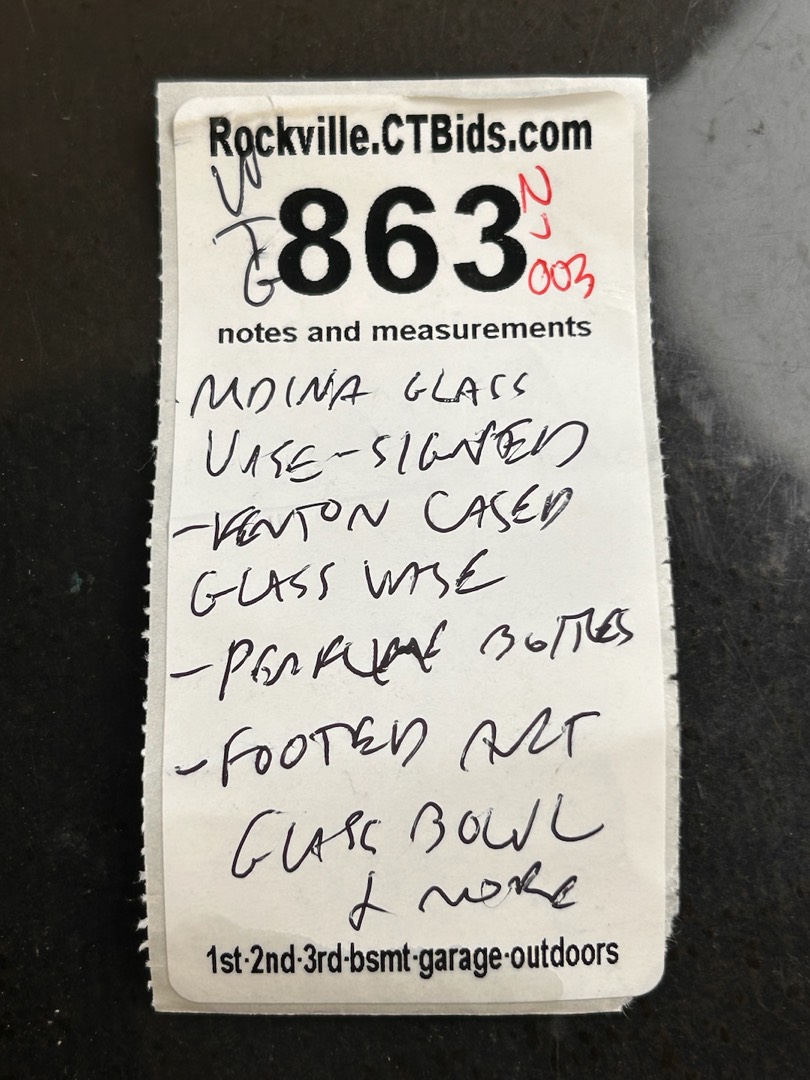 Rockville.CTBids.com
863
003
notes and measurements
MDINA GLASS
VASE-SIGNED
-FENTON CASED
GLASS VASE
-PERFUME BOTTLES
-FOOTED ART
GLASS BOWL
& MORE
1st·2nd·3rd·bsmt·garage·outdoors